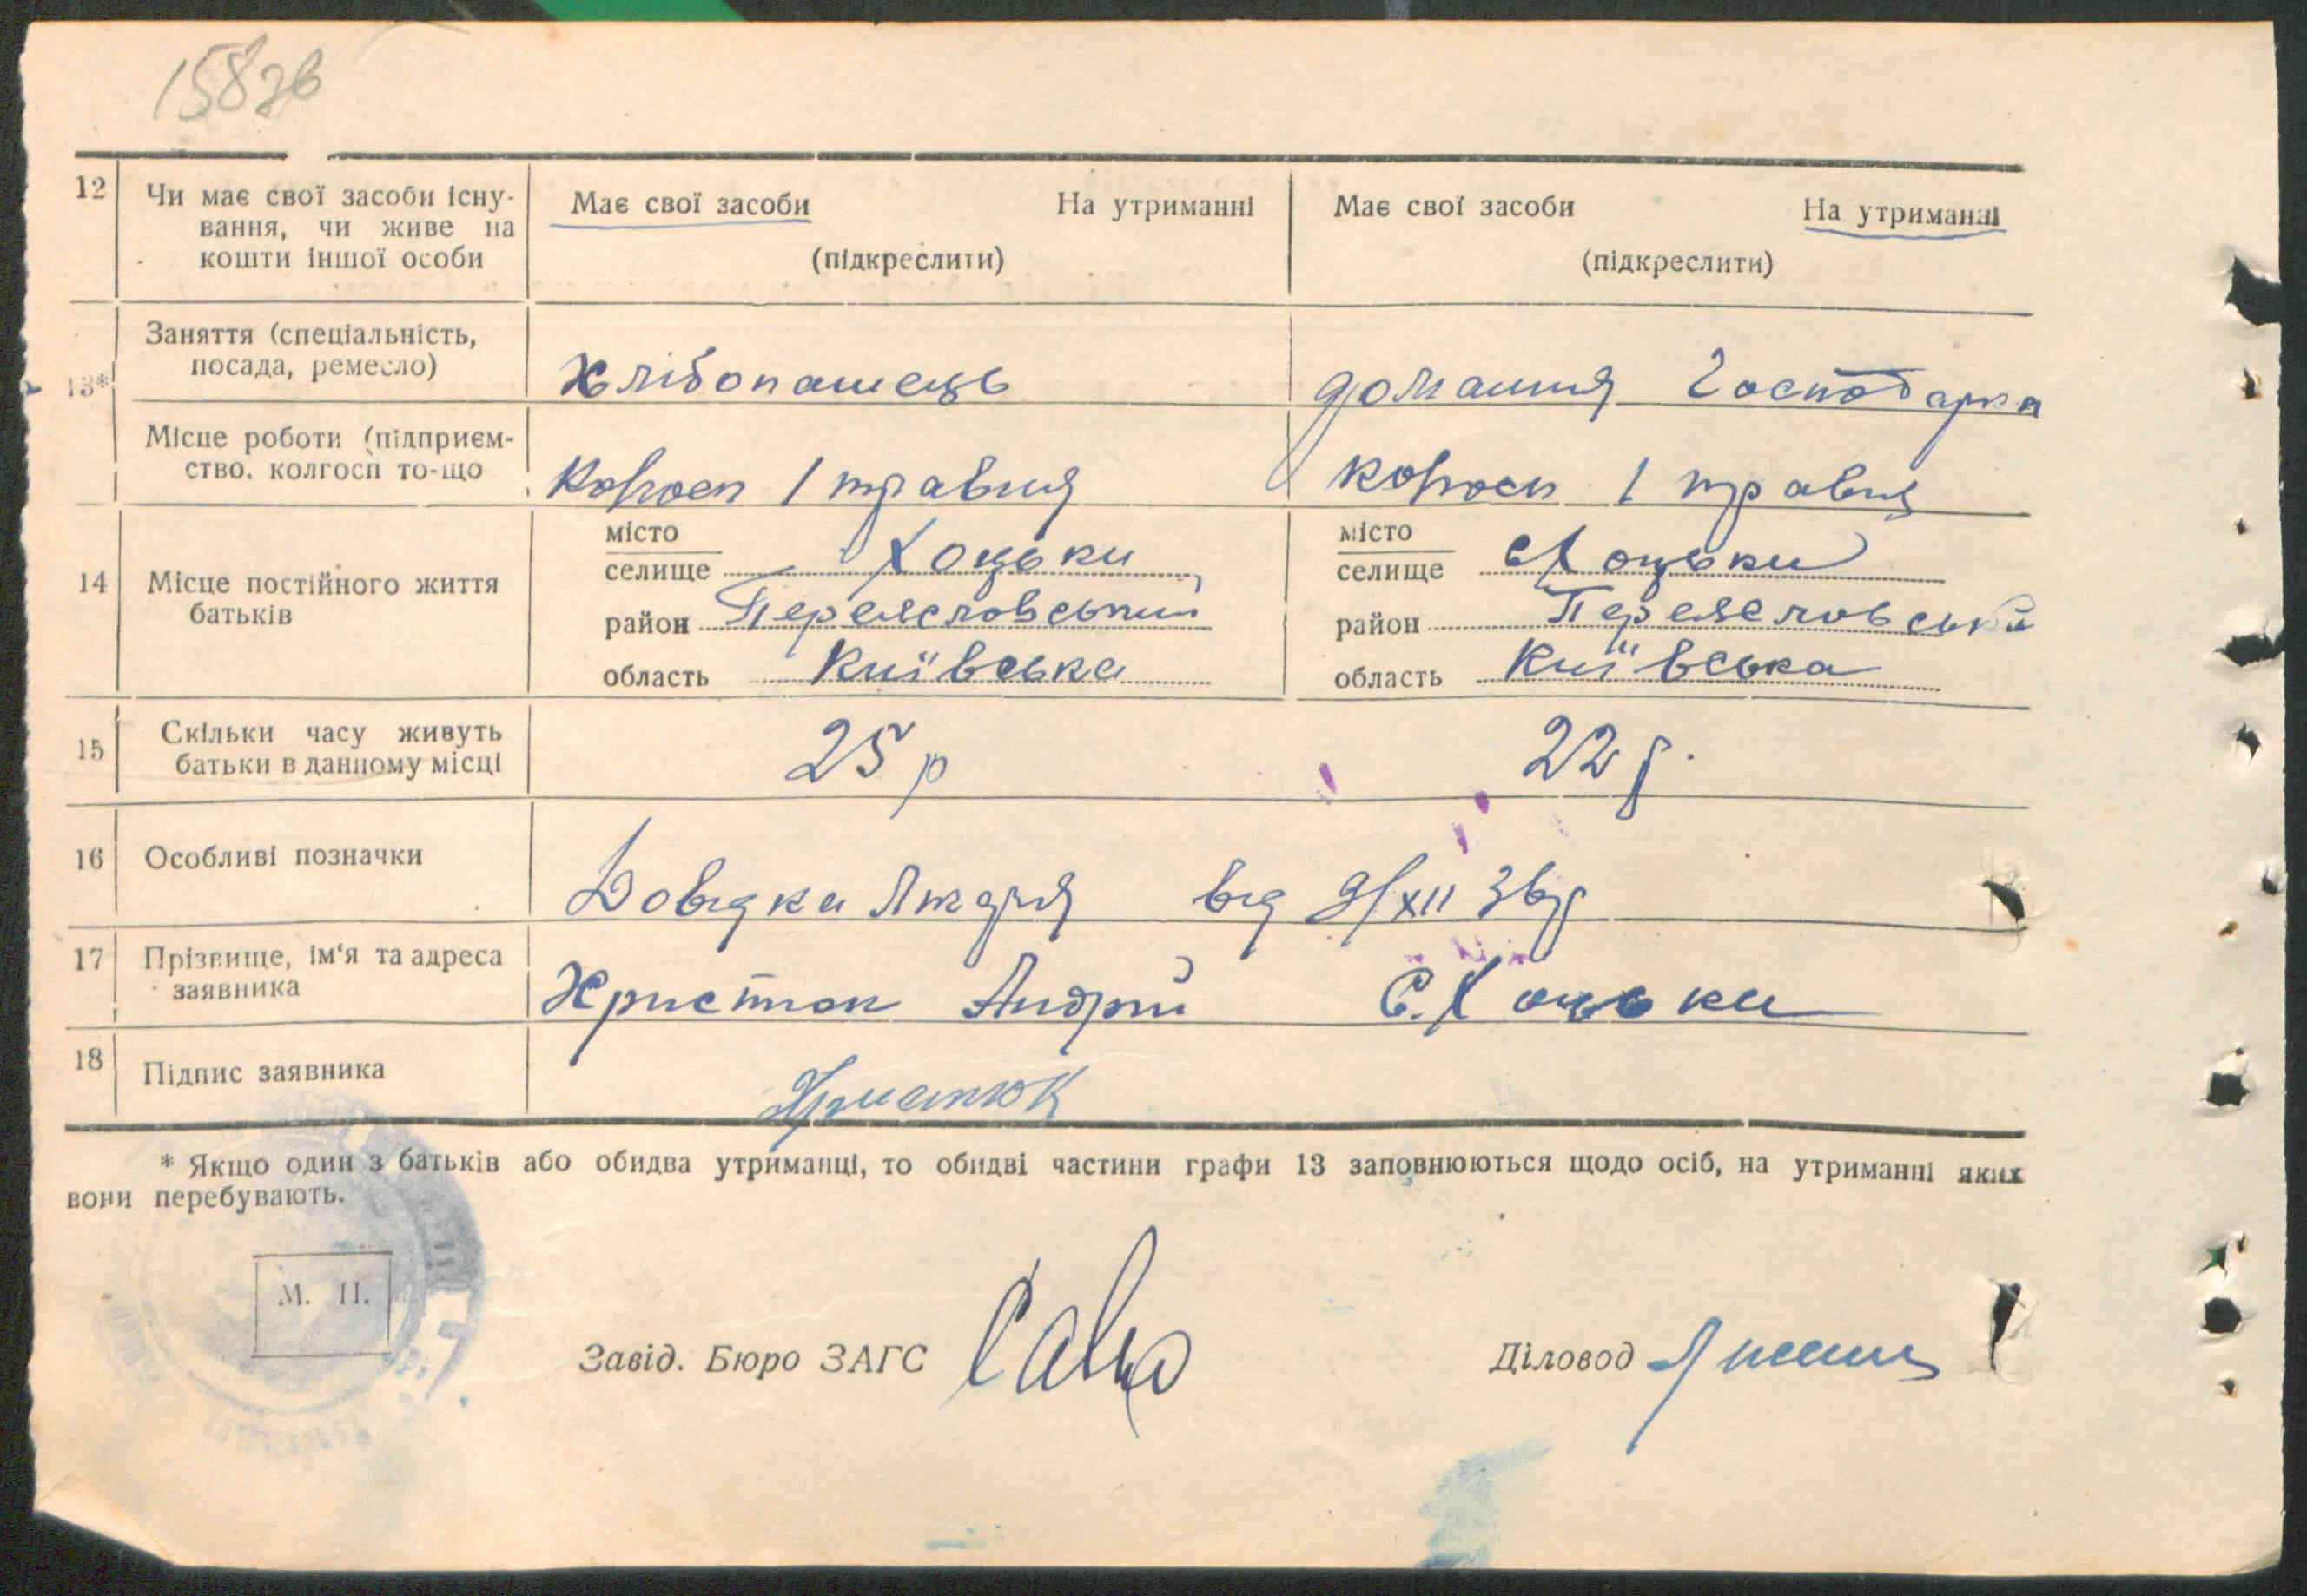 158зв
12 Чи має свої засоби існу-
вання, чи живе на
кошти іншої особи
Має свої засоби На утриманні
(підкреслити)
Має свої засоби На утриманні
(підкреслити)
13*
Заняття (спеціальність,
посада, ремесло)
Хлібопашець
домашня Господарка
Місце роботи (підприєм-
ство, колгосп то-що
1 травня
1 травня
14 Місце постійного життя
батьків
місто
селище Хоцьки
район Переяславський
область Київська
місто
селище Хоцьки
район
область Київська
15 Скільки часу живуть
батьки в данному місці
25 р
22 р.
16 Особливі позначки
Довідка від XII 36р
17 Прізвище, ім'я та адреса
заявника
Христюк Андрій С. Хоцьки
18 Підпис заявника
Христюк
* Якщо один з батьків або обидва утриманці, то обидві частини графи 13 заповнюються щодо осіб, на утриманні яких
вони перебувають.
М. П.
Завід. Бюро ЗАГС
Діловод